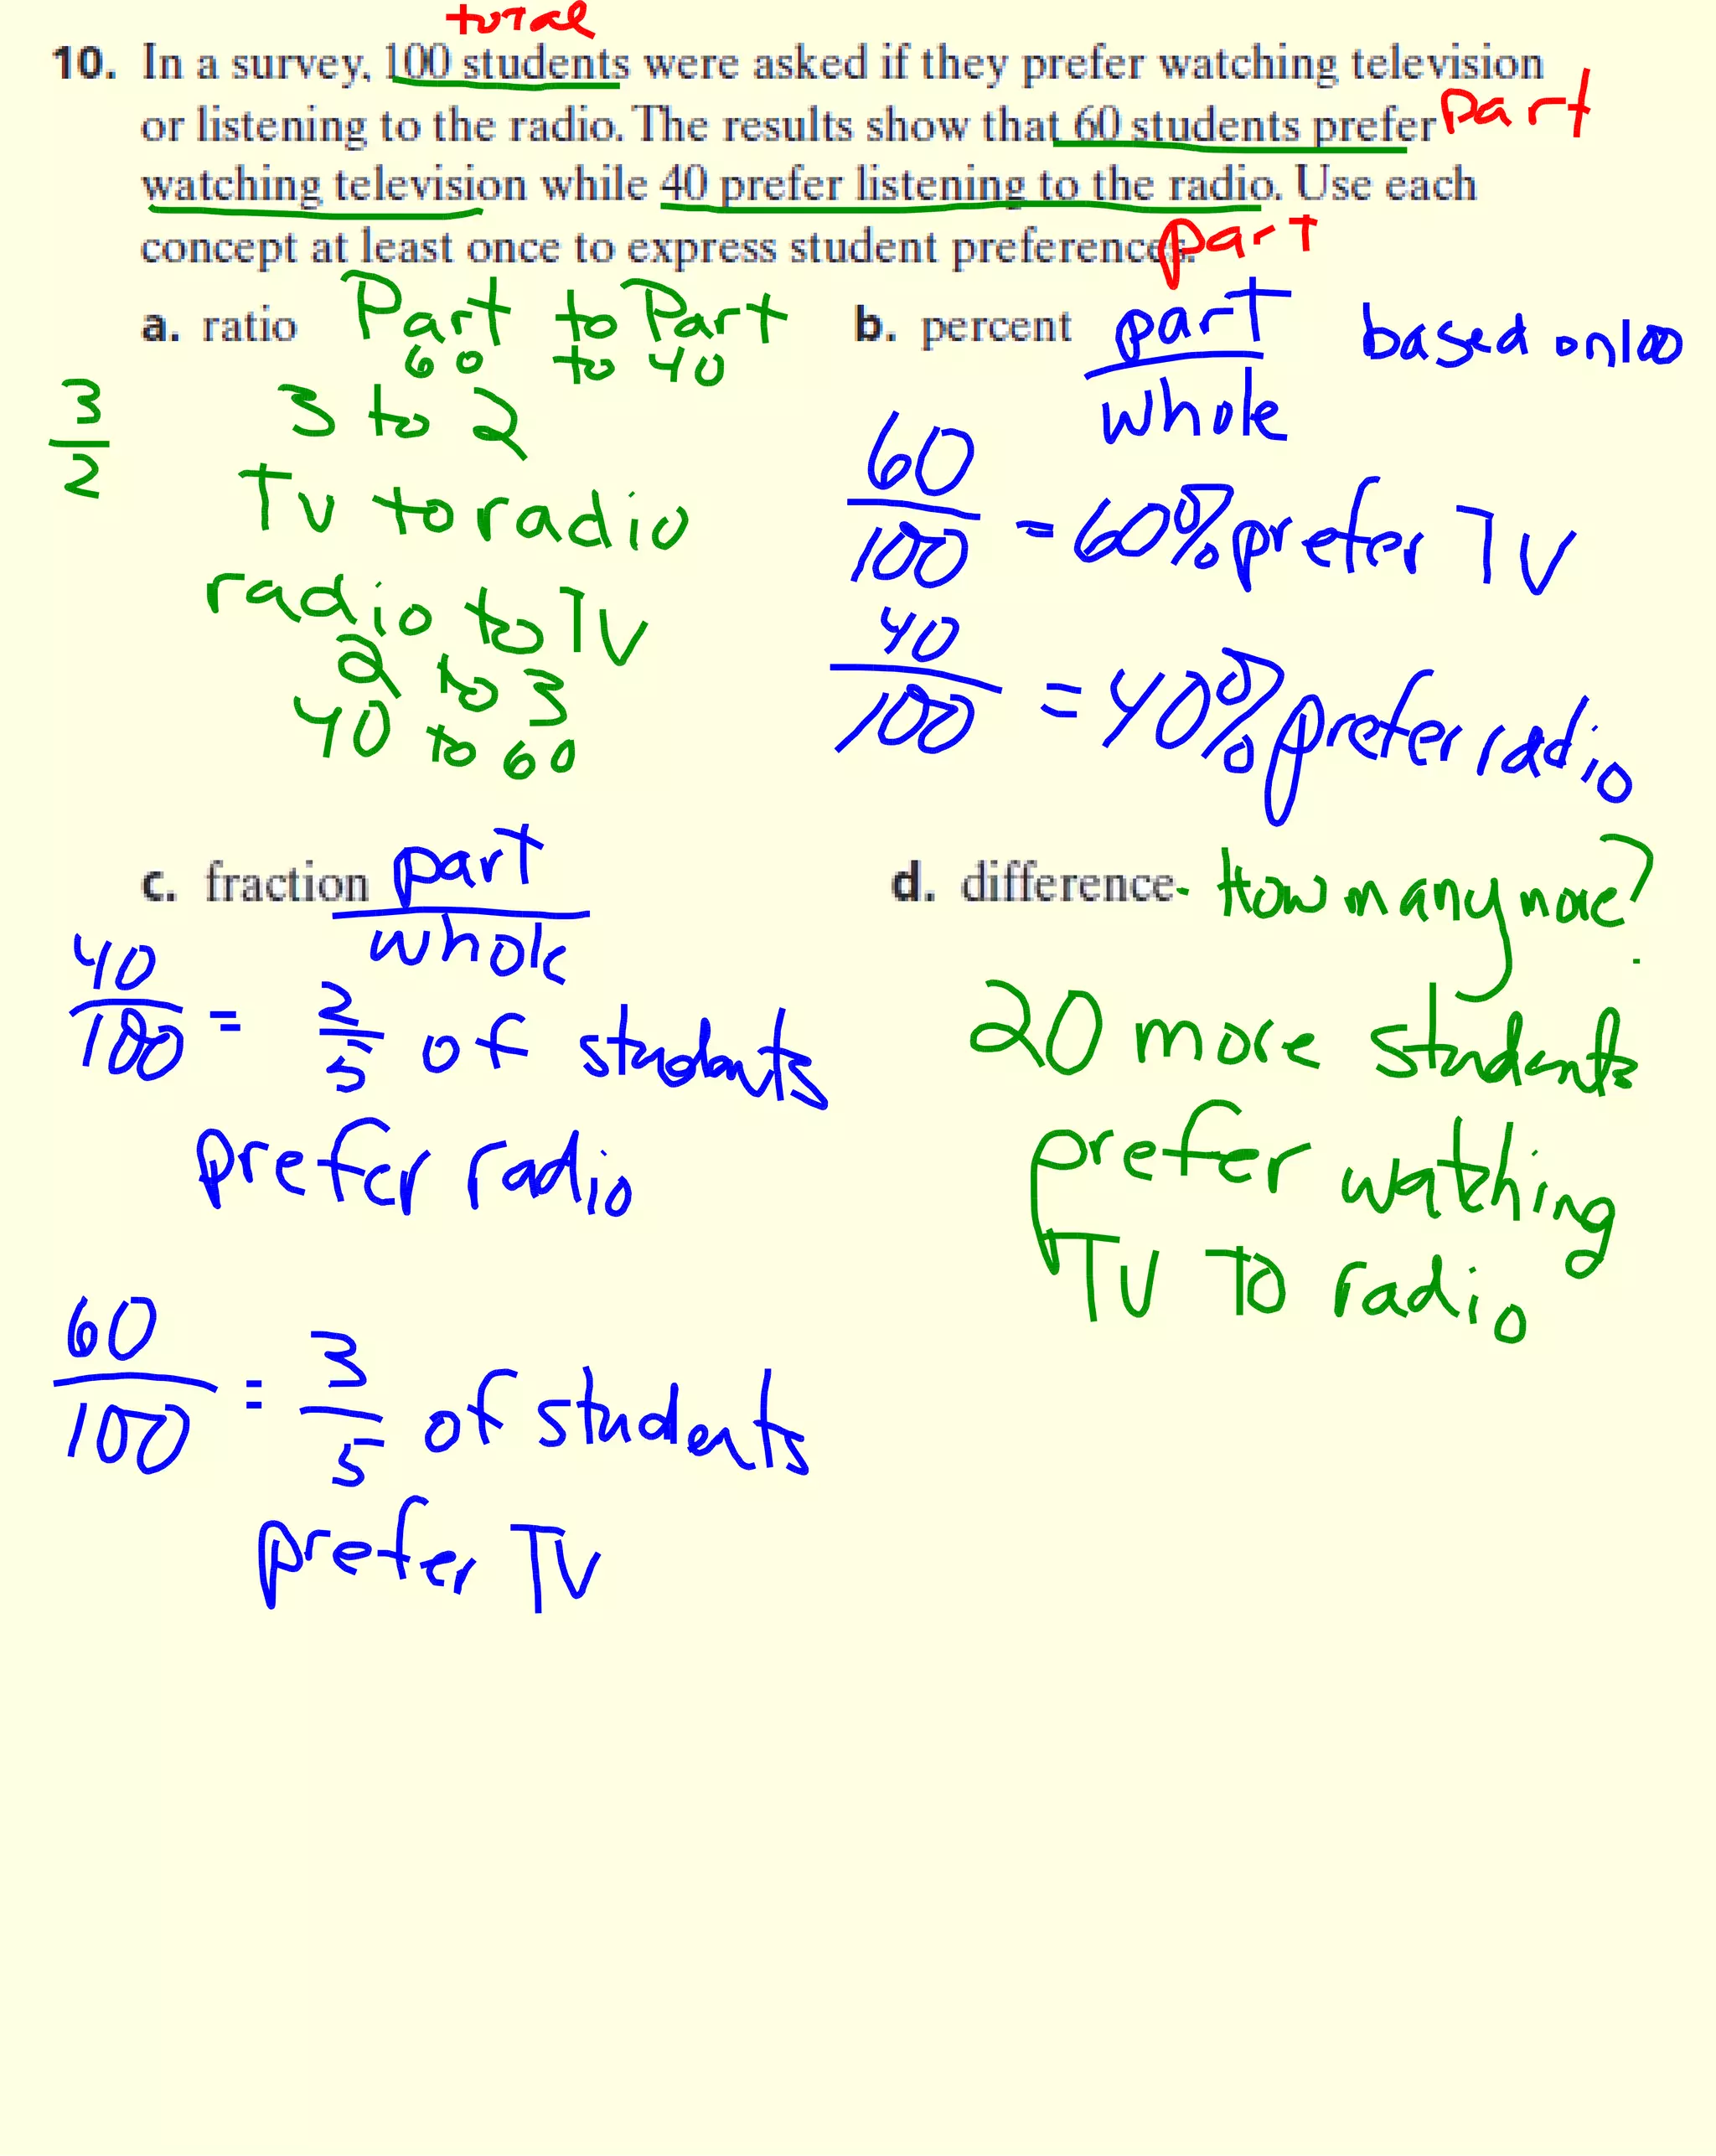 total
10. In a survey, 100 students were asked if they prefer watching television
or listening to the radio. The results show that 60 students prefer part
watching television while 40 prefer listening to the radio. Use each
concept at least once to express student preferences.
part
a. ratio Part to Part
60 to 40
3 to 2
3/2
TV to radio
radio to TV
2 to 3
40 to 60
b. percent part/whole based on 100
60/100 = 60% prefer TV
40/100 = 40% prefer radio
c. fraction part/whole
40/100 = 2/5 of students
prefer radio
60/100 = 3/5 of students
prefer TV
d. difference - How many more?
20 more students
prefer watching
TV TO radio